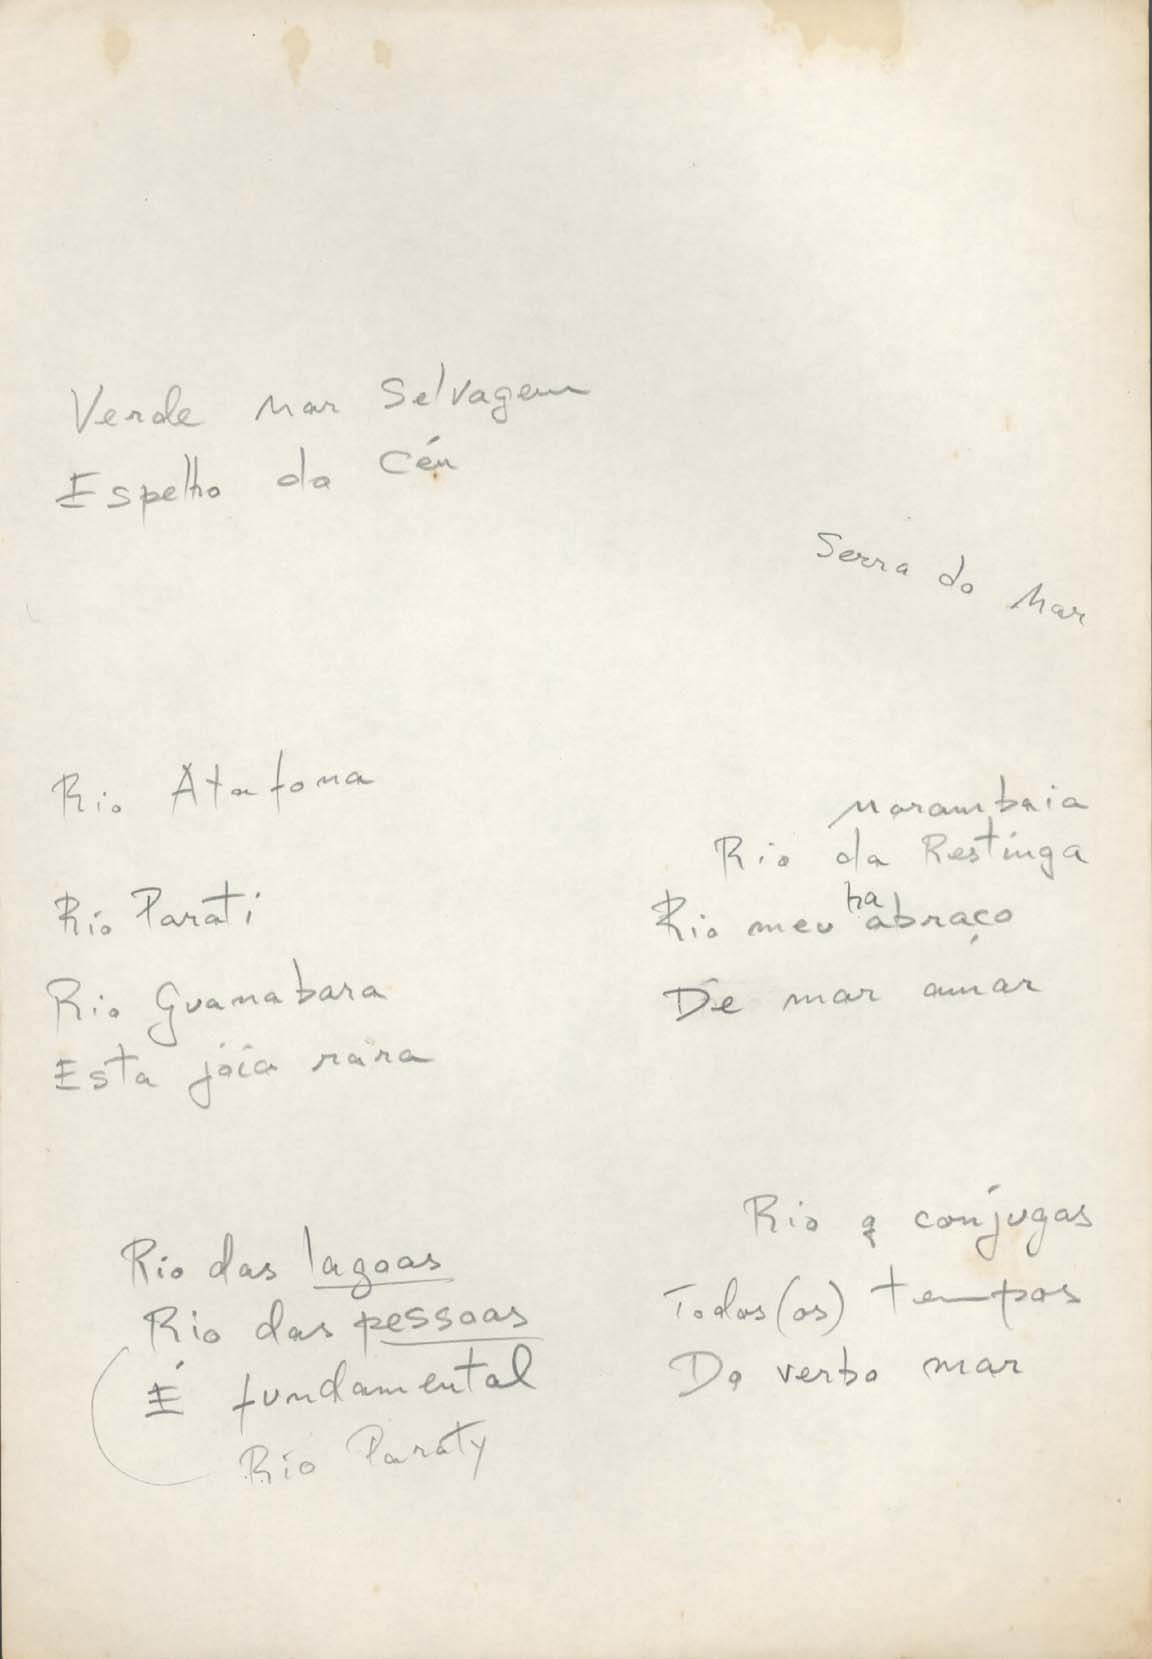 Verde mar Selvagem
Espelho do Céu
Serra do Mar
Rio Atafona
Rio Parati
Rio Guanabara
Esta jóia rara
Marambaia
Rio da Restinga
Rio meu abraço
De mar amar
Rio das lagoas
Rio das pessoas
É fundamental
Rio Paraty
Rio q conjugas
Todos (os) tempos
Do verbo mar